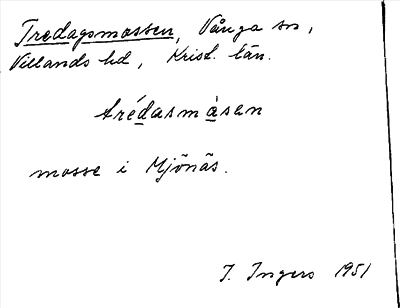 Tredagsmossen, Vånga sn,
Villands hd, Krist. län.
trédasmàsen
mosse i Mjönäs.
I. Ingers 1951